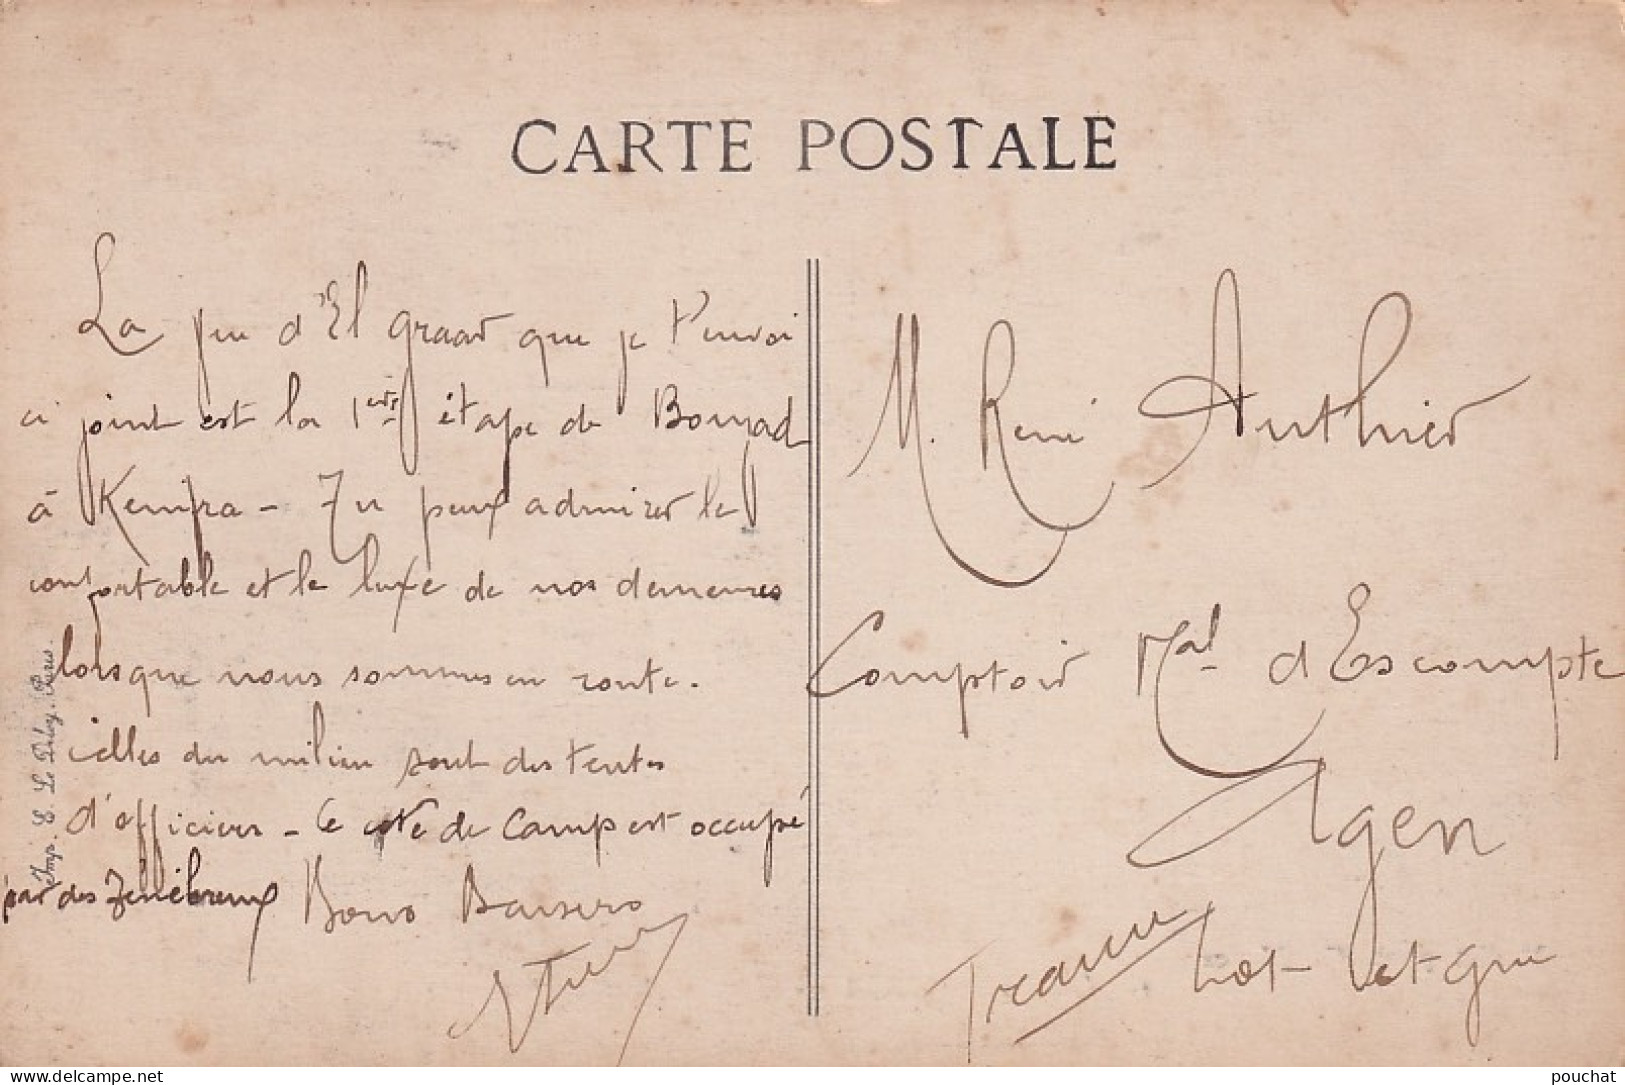 CARTE POSTALE
La vue d'El Graar que je t'envoi
ci joint est la 1ère étape de Boujad
à Kenifra – Tu peux admirer le
confortable et le luxe de nos demeures
lorsque nous sommes en route.
celles du milieu sont des tentes
d'officiers – Ce coté de Camp est occupé
par des Ténébreux Bons Baisers
Imp. E. Le Deley. Paris.
M. René Authier
Comptoir Nal d'Escompte
Agen
France Lot et gne
pouchat
https://www.delcampe.net